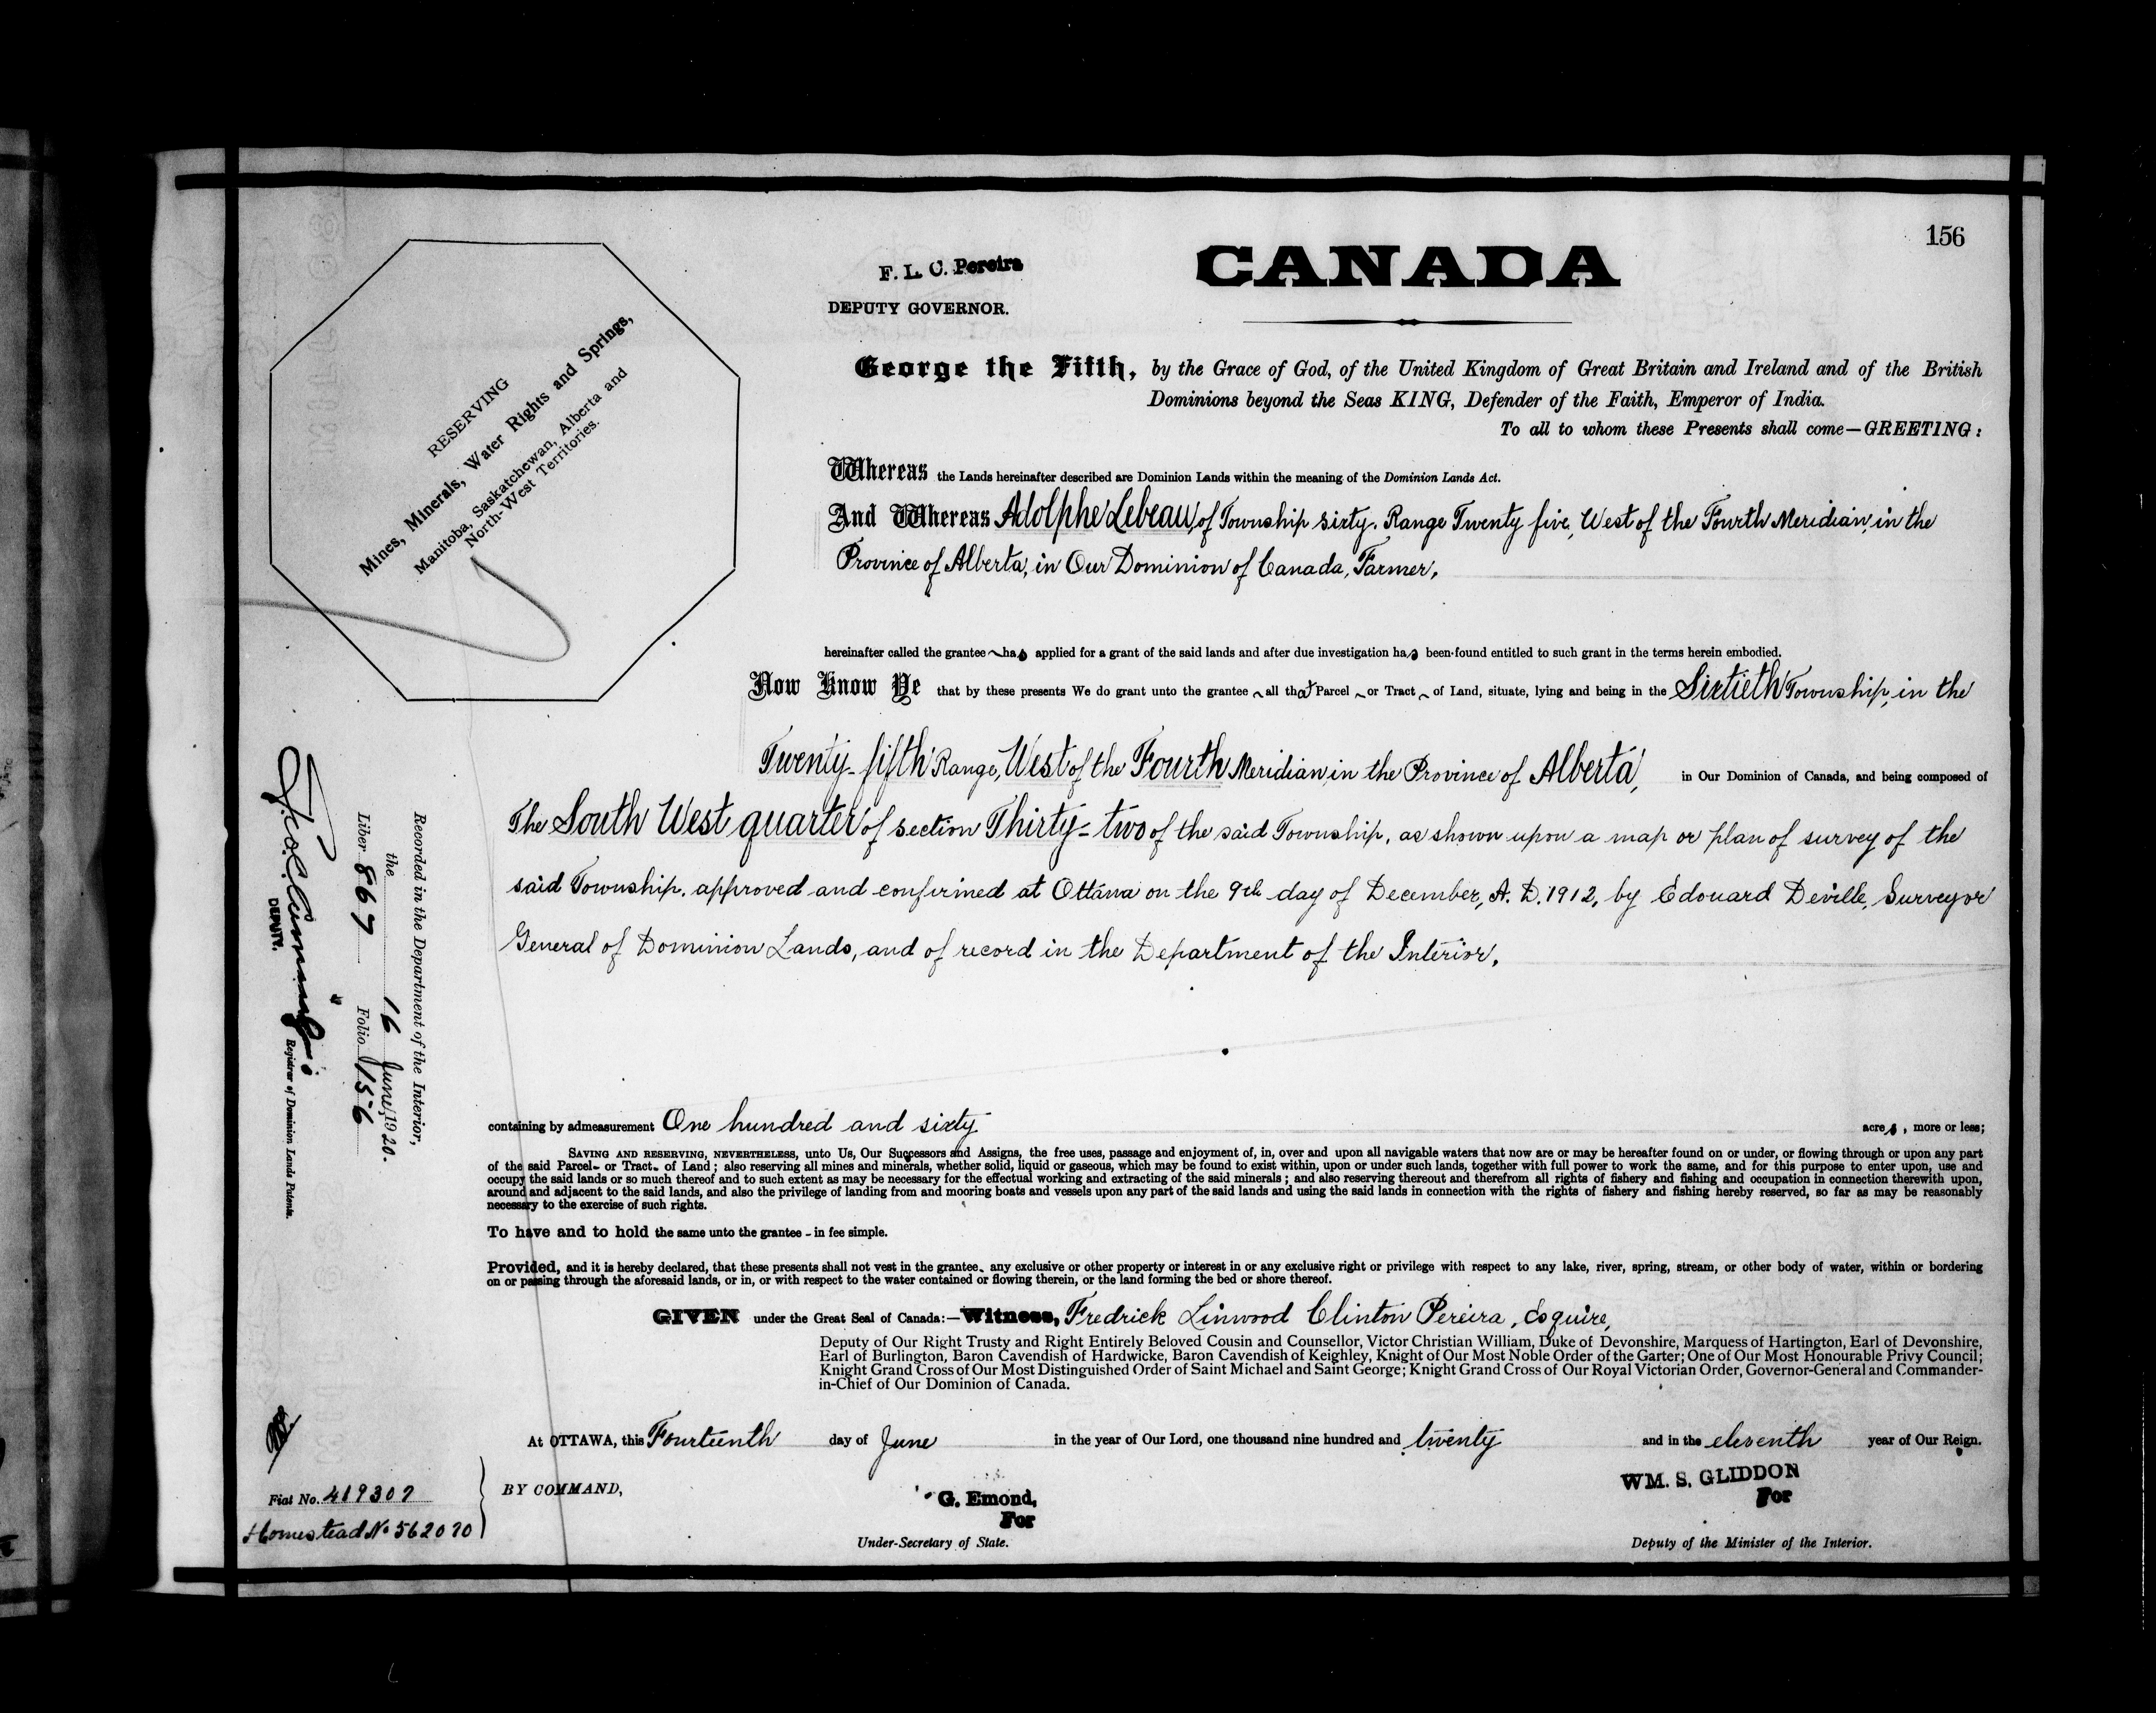 156
F. L. C. Pereira
DEPUTY GOVERNOR.
CANADA
RESERVING
Mines, Minerals, Water Rights and Springs,
Manitoba, Saskatchewan, Alberta and
North-West Territories.
George the Fifth, by the Grace of God, of the United Kingdom of Great Britain and Ireland and of the British
Dominions beyond the Seas KING, Defender of the Faith, Emperor of India.
To all to whom these Presents shall come—GREETING:
Whereas the Lands hereinafter described are Dominion Lands within the meaning of the Dominion Lands Act.
And Whereas Adolphe Lebeau, of Township sixty, Range Twenty five, West of the Fourth Meridian, in the
Province of Alberta, in Our Dominion of Canada, Farmer,
hereinafter called the grantee has applied for a grant of the said lands and after due investigation has been found entitled to such grant in the terms herein embodied.
Now Know Ye that by these presents We do grant unto the grantee all that Parcel or Tract of Land, situate, lying and being in the Sixtieth Township, in the
Twenty-fifth Range, West of the Fourth Meridian, in the Province of Alberta, in Our Dominion of Canada, and being composed of
The South West quarter of section Thirty-two of the said Township, as shown upon a map or plan of survey of the
said Township, approved and confirmed at Ottawa on the 9th day of December, A. D. 1912, by Edouard Deville, Surveyor
General of Dominion Lands, and of record in the Department of the Interior,
containing by admeasurement One hundred and sixty acres, more or less;
SAVING AND RESERVING, NEVERTHELESS, unto Us, Our Successors and Assigns, the free uses, passage and enjoyment of, in, over and upon all navigable waters that now are or may be hereafter found on or under, or flowing through or upon any part
of the said Parcel- or Tract- of Land; also reserving all mines and minerals, whether solid, liquid or gaseous, which may be found to exist within, upon or under such lands, together with full power to work the same, and for this purpose to enter upon, use and
occupy the said lands or so much thereof and to such extent as may be necessary for the effectual working and extracting of the said minerals; and also reserving thereout and therefrom all rights of fishery and fishing and occupation in connection therewith upon,
around and adjacent to the said lands, and also the privilege of landing from and mooring boats and vessels upon any part of the said lands and using the said lands in connection with the rights of fishery and fishing hereby reserved, so far as may be reasonably
necessary to the exercise of such rights.
To have and to hold the same unto the grantee - in fee simple.
Provided, and it is hereby declared, that these presents shall not vest in the grantee, any exclusive or other property or interest in or any exclusive right or privilege with respect to any lake, river, spring, stream, or other body of water, within or bordering
on or passing through the aforesaid lands, or in, or with respect to the water contained or flowing therein, or the land forming the bed or shore thereof.
GIVEN under the Great Seal of Canada:—Witness, Fredrick Linwood Clinton Pereira, Esquire,
Deputy of Our Right Trusty and Right Entirely Beloved Cousin and Counsellor, Victor Christian William, Duke of Devonshire, Marquess of Hartington, Earl of Devonshire,
Earl of Burlington, Baron Cavendish of Hardwicke, Baron Cavendish of Keighley, Knight of Our Most Noble Order of the Garter; One of Our Most Honourable Privy Council;
Knight Grand Cross of Our Most Distinguished Order of Saint Michael and Saint George; Knight Grand Cross of Our Royal Victorian Order, Governor-General and Commander-
in-Chief of Our Dominion of Canada.
At OTTAWA, this Fourteenth day of June in the year of Our Lord, one thousand nine hundred and twenty and in the eleventh year of Our Reign.
BY COMMAND,
G. Emond,
For
Under-Secretary of State.
WM. S. GLIDDON
For
Deputy of the Minister of the Interior.
Recorded in the Department of the Interior,
the 16 June, 1920.
Liber 867 Folio 156
DEPUTY.
Registrar of Dominion Lands Patents.
Fiat No. 419307
Homestead No 562070